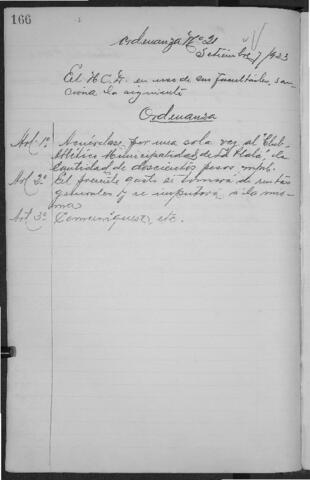 166
Ordenanza Nº 21
Setiembre 7/923
El H.C.D. en uso de sus facultades, san-
ciona la siguiente
Ordenanza
Art. 1º Acuérdase por una sola vez al "Club
Atlético Municipalidad de La Plata", la
cantidad de doscientos pesos m/n.
Art 2º El presente gasto se tomará de rentas
generales y se imputará a la mis-
ma
Art 3º Comuníquese, etc.